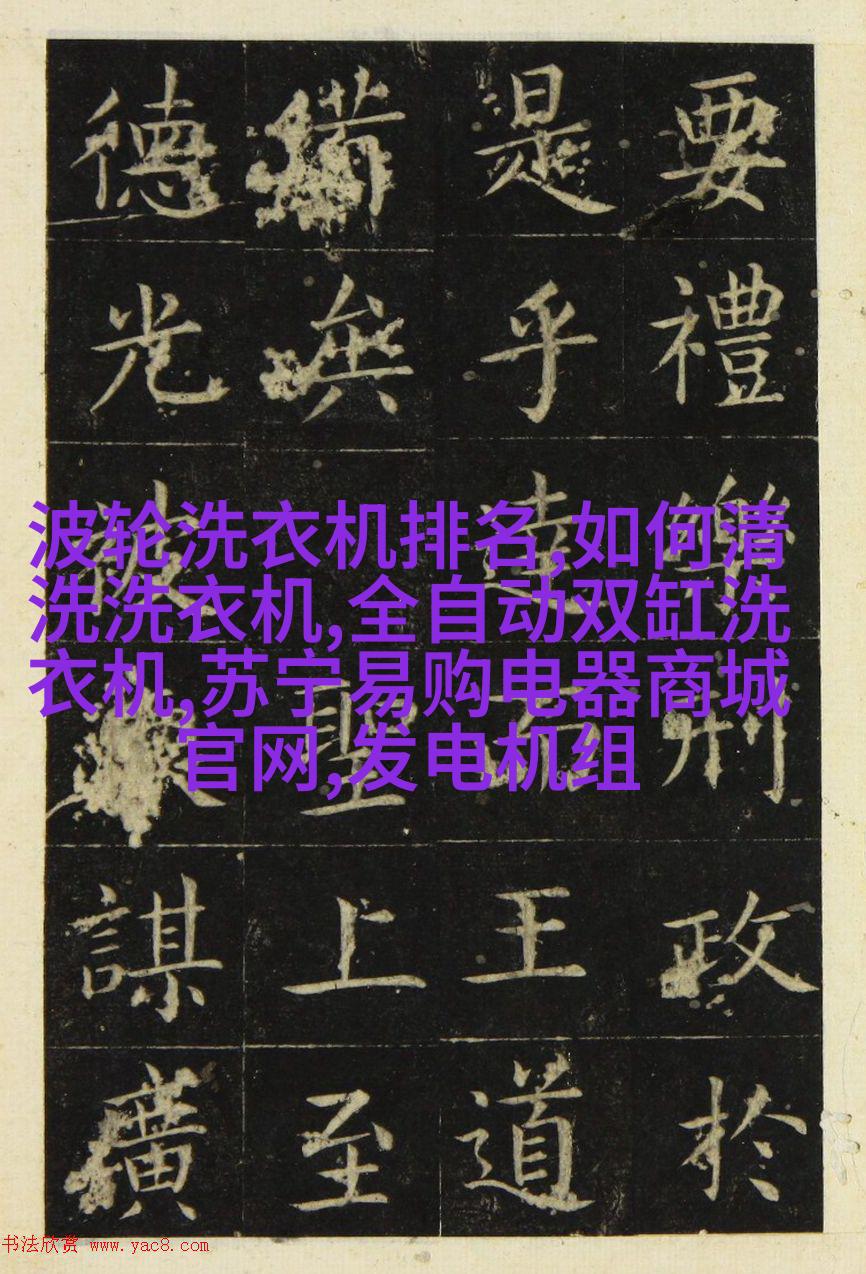 要禮樂刑政於
是乎達而王道
備無聖上至
德光謀廣
波轮洗衣机排名,如何清
洗洗衣机,全自动双缸洗
衣机,苏宁易购电器商城
官网,发电机组
书法欣赏 www.yac8.com